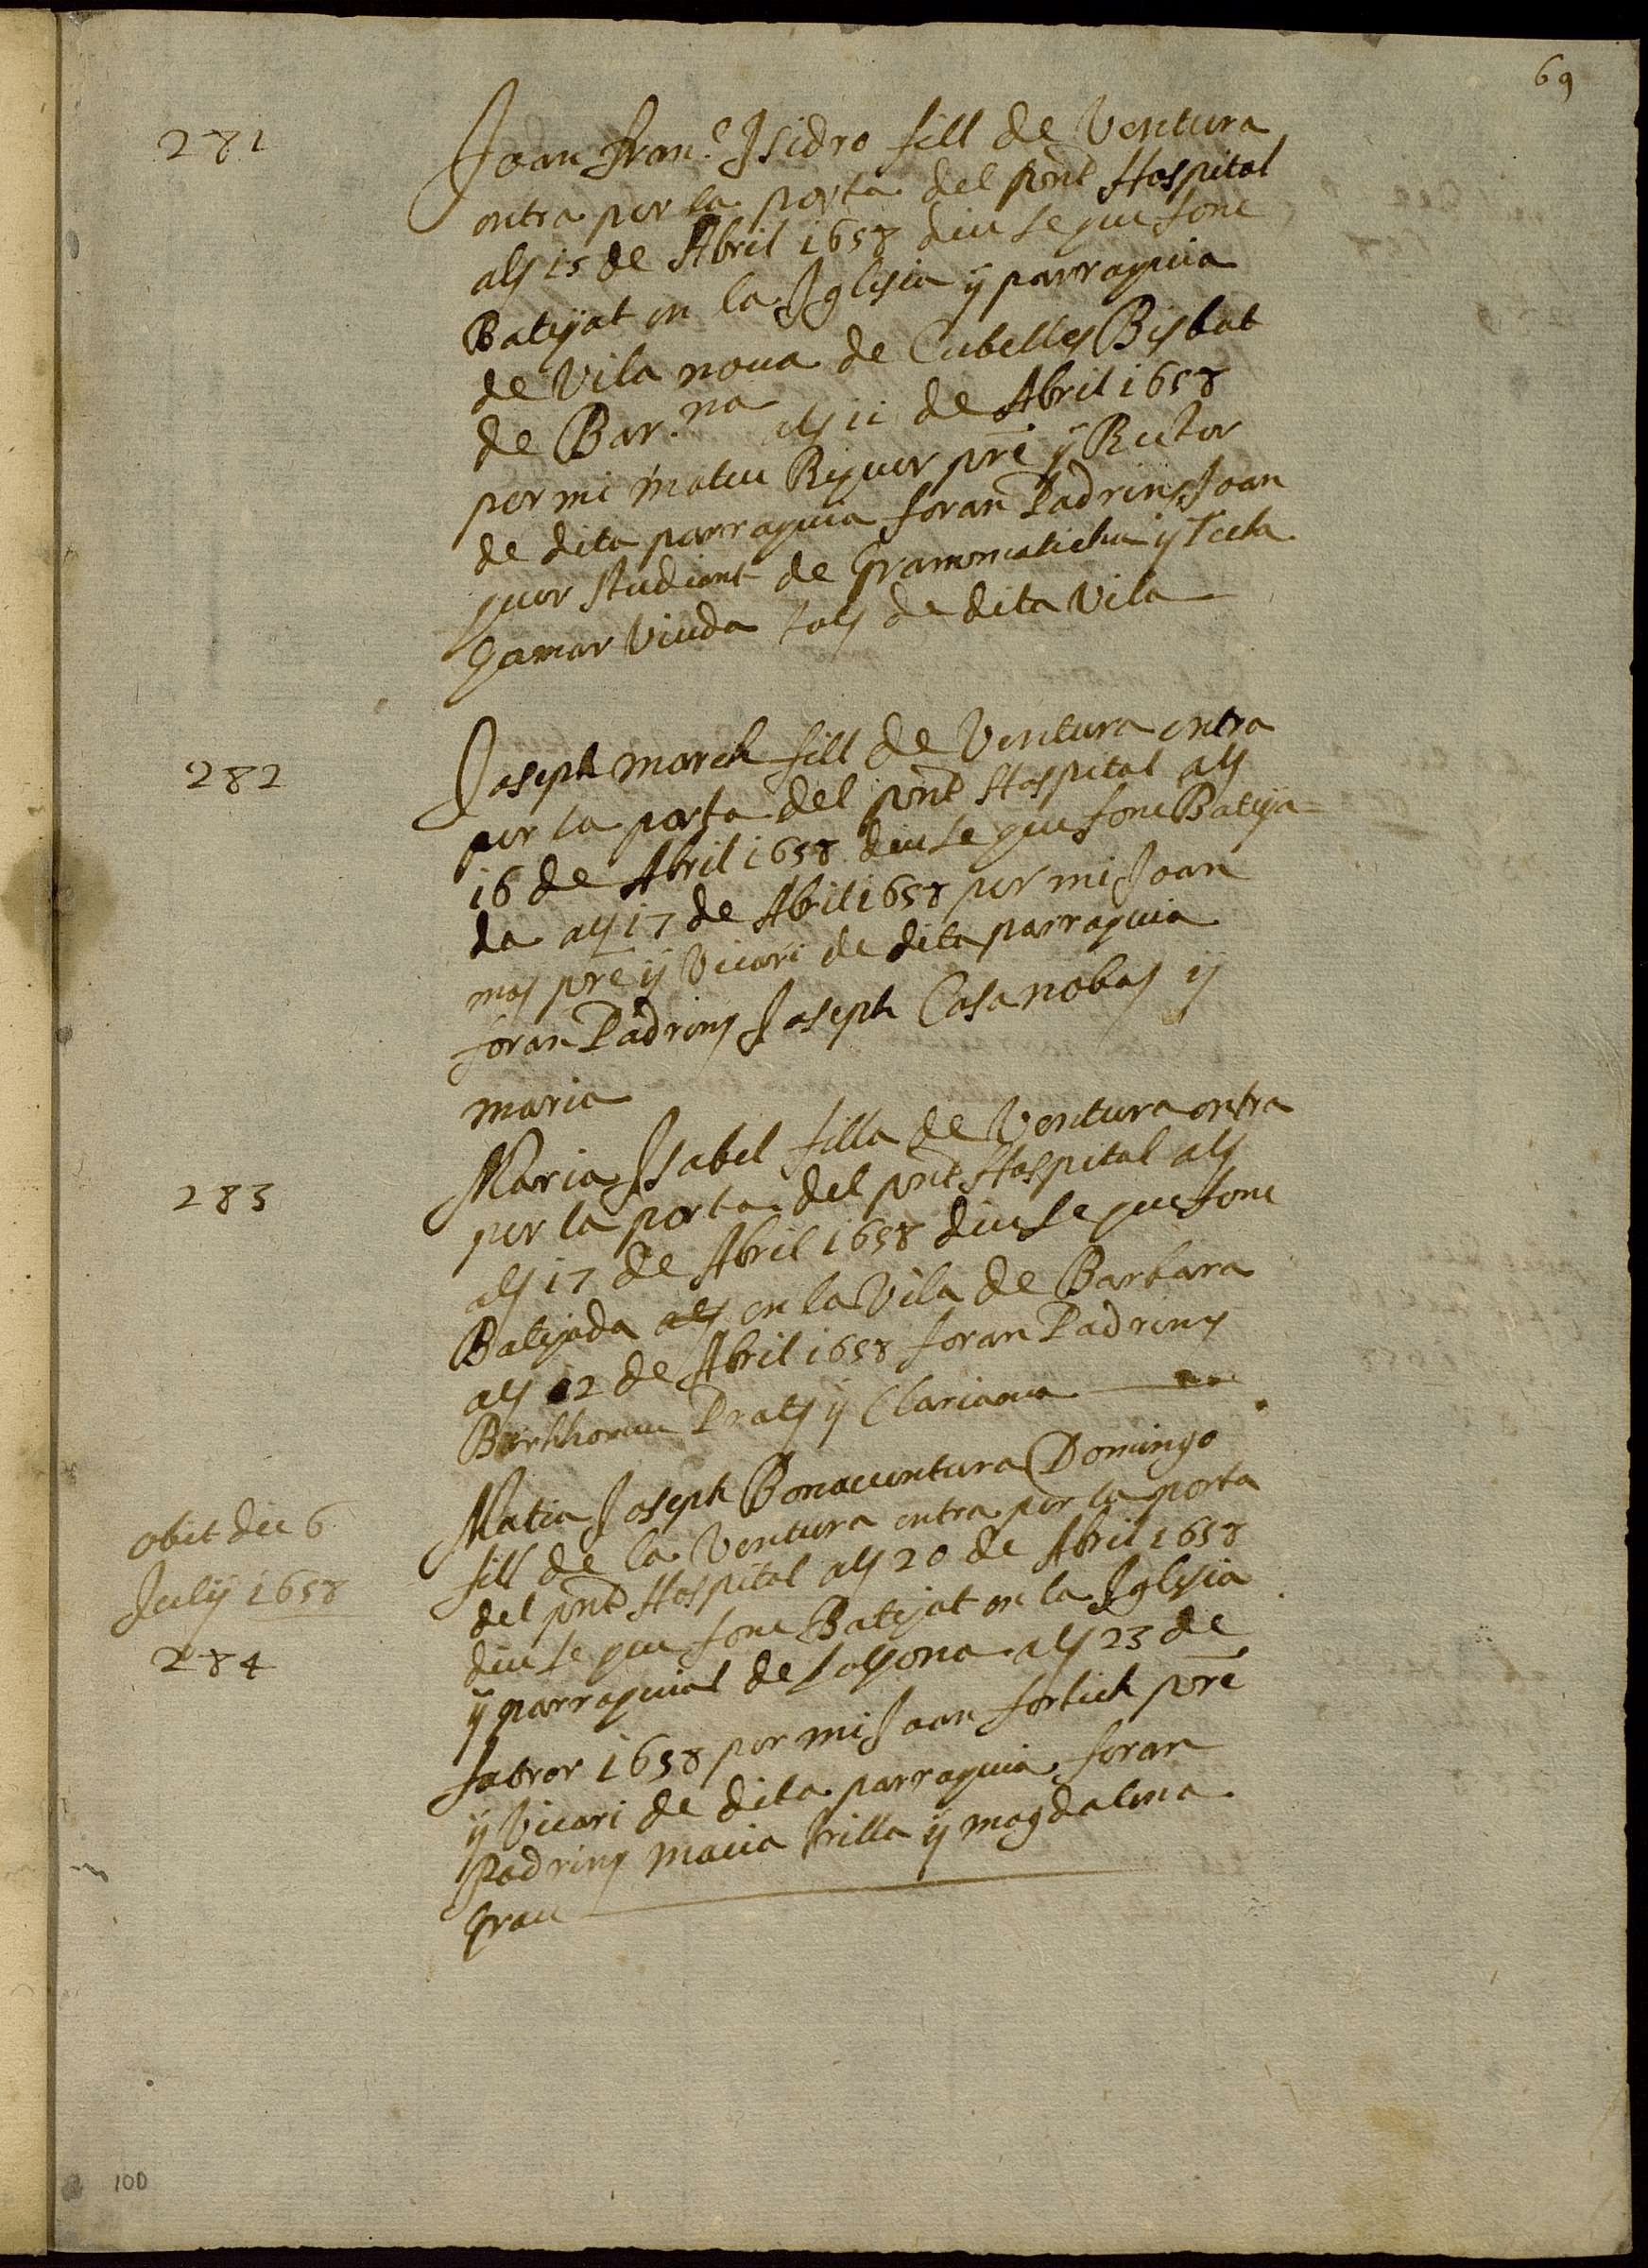 69
281
Joan Fran.co Isidro fill de Ventura
entra per la porta del pnt Hospital
als 15 de Abril 1658 diu se que fonc
Batejat en la Iglesia y parraquia
de Vila nova de Cubelles Bisbat
de Bar.na als 11 de Abril 1658
per mi Mateu Riquer pre y Rector
de dita parraquia foran Padrins Joan
quer studiant de Grammaticha y Tecla
Gamar Viuda tots de dita Vila
282
Joseph March fill de Ventura entra
per la porta del pnt Hospital als
16 de Abril 1658 diu se que fonc Bateja=
da als 17 de Abril 1658 per mi Joan
mas pre y Vicari de dita parraquia
foran Padrins Joseph Casanobas y
maria
283
Maria Isabel filla de Ventura entra
per la porta del pnt Hospital als
als 17 de Abril 1658 diu se que fonc
Batejada als en la Vila de Barbara
als 12 de Abril 1658 foran Padrins
Barthomeu Prats y Clariana
obit die 6
Julij 1658
284
Matia Joseph Bonaventura Domingo
fill de la Ventura entra per la porta
del pnt Hospital als 20 de Abril 1658
diu se que fonc Batejat en la Iglesia
y parraquial de Solsona als 23 de
Fabrer 1658 per mi Joan fortich pre
y Vicari de dita parraquia foran
Padrins macia trilla y magdalena
Grau
100